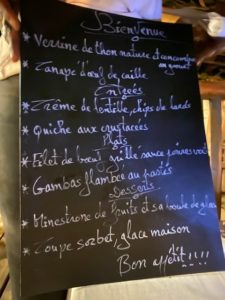 Bienvenue
* Verrine de thon nature et concombre
en gourmet
* Canapé d'œuf de caille
Entrées
* Crème de lentille, chips de lards
* Quiche aux crustacés
Plats
* Filet de bœuf grillé sauce poivre vert
* Gambas flambée au pastis
Desserts
* Minestrone de fruits et sa boule de glace
* Coupe sorbet, glace maison
Bon appétit!!!!